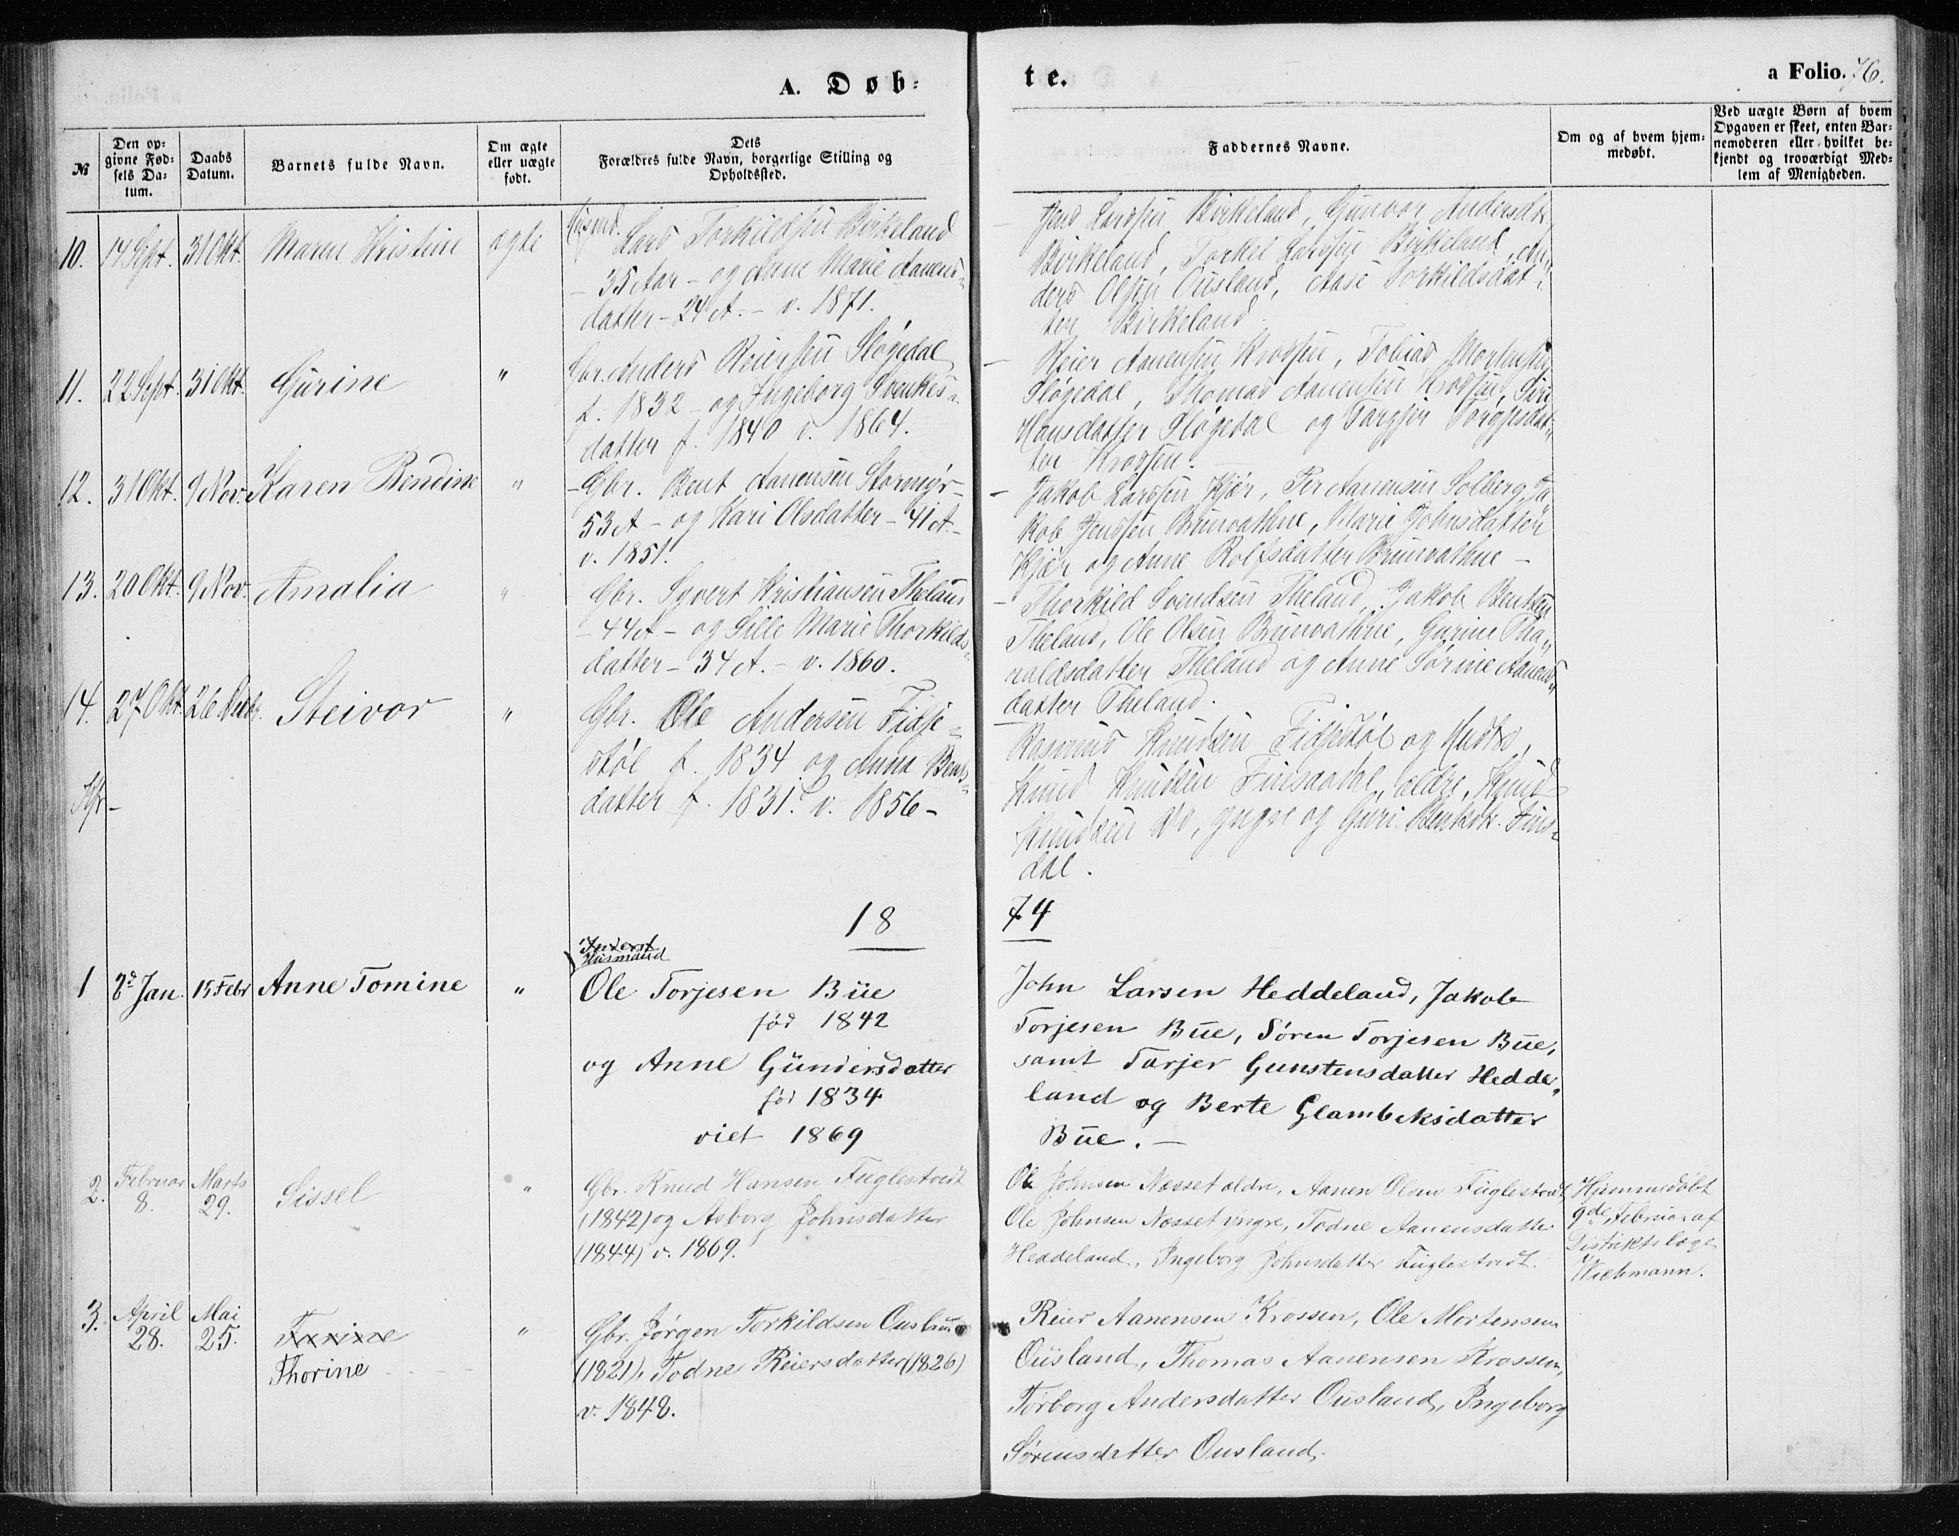 A. Døb-
te.
a Folio. 76.
№
Den opgivne Fødsels Datum.
Daabs Datum.
Barnets fulde Navn.
Om ægte eller uægte født.
Dets Forældres fulde Navn, borgerlige Stilling og Opholdssted.
Faddernes Navne.
Om og af hvem hjemmedøbt.
Ved uægte Børn af hvem Opgaven er skeet, enten Barnemoderen eller hvilket bekjendt og troværdigt Medlem af Menigheden.
10. 14 Sept. 31 Okt. Maren Kristine ægte
Lars Torkildsen Birkeland
- 35 Aar - og Anne Marie Aanens-
datter - 24 A. - v. 1871.
- Jens Larssen Birkeland, Gunvor Andersdtr
Birkeland, Torkel Larssen Birkeland, An-
ders Olsen Ousland, Aase Torkildsdat-
ter Birkeland
11. 22 Sept. 31 Okt. Gurine "
Gbr. Anders Reiersen Sløgedal
f. 1832 - og Ingeborg Svenkes-
datter f. 1840 v. 1864.
- Reier Aanensen Krossen, Tobias Mortensen
Sløgedal, Thomas Aanensen Krossen, Siri
Hansdatter Sløgedal og Targjer Torgjusdat-
ter Krossen.
12. 31 Okt. 9 Nov. Karen Bendine "
- Gbr. Bent Aanensen Stormyr -
53 A - og Kari Olsdatter - 41 A. -
v. 1851.
- Jakob Larssen Kjær, Per Aanensen Solberg, Ja-
kob Jenssen Brunvathne, Marie Johnsdatter
Kjær og Anne Rolfsdatter Brunvathne -
13. 20 Okt. 9 Nov. Amalia "
Gbr. Syvert Kristiansen Theland
- 44 A - og Sille Marie Thorkilds-
datter - 34 A. - v. 1860.
- Thorkild Svendsen Theland, Jakob Bentsen
Theland, Ole Olsen Brunvathne, Gurine Thö-
naldsdatter Theland og Anne Sørine Aanens-
datter Theland.
14. 27 Okt. 26 Decbr. Steivor "
Gbr. Ole Andersen Fidje-
støl f. 1834 og Anna Bents-
datter f. 1831. v. 1856 -
Rasmus Knudsen Fidjestøl og Hustro,
Knud Knudsen Finsaadal, ældre, Knud
Knudsen Do, yngre og Guri Bentsdtr. Fins-
dal.
18
74
1 2d Jan. 15 Febr Anne Tomine "
Inderst
Husmand
Ole Torjesen Büe
fød 1842
og Anne Gundersdatter
fød 1834
viet 1869
John Larsen Heddeland, Jakob
Torjesen Büe, Sören Torjesen Büe,
samt Tarjer Gunstensdatter Hedde-
land og Berte Glambeksdatter
Büe. -
2. Februar 8. Marts 29. Sissel "
Gbr. Knud Hansen Fuglestvedt
(1842) og Asborg Johnsdatter
(1844) v. 1869.
Ole Johnsen Næsset ældre, Aanen Olsen Fuglestvedt
Ole Johnsen Næsset yngre, Todne Aanensdatter
Heddeland, Ingeborg Johnsdatter Fuglestvedt.
Hjemmedøbt
9de Februar af
Distriktslæge
Wichmann.
3. April 28. Mai 25. Torine
Thorine "
Gbr. Jørgen Torkildsen Ousland
(1821), Todne Reiersdatter (1826)
v. 1848.
Reier Aanensen Krossen, Ole Mortensen
Ousland, Thomas Aanensen Krossen,
Torborg Andersdatter Ousland, Ingeborg
Sørensdatter Ousland.